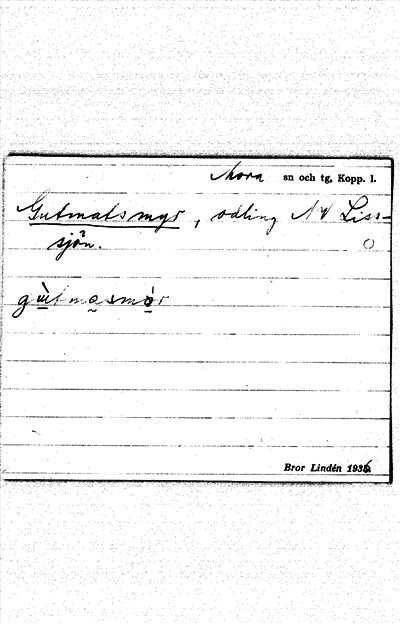 Mora sn och tg, Kopp. l.
Gutmatsmyr, odling NV Liss-
sjön.
gùtmasmòr
Bror Lindén 1936